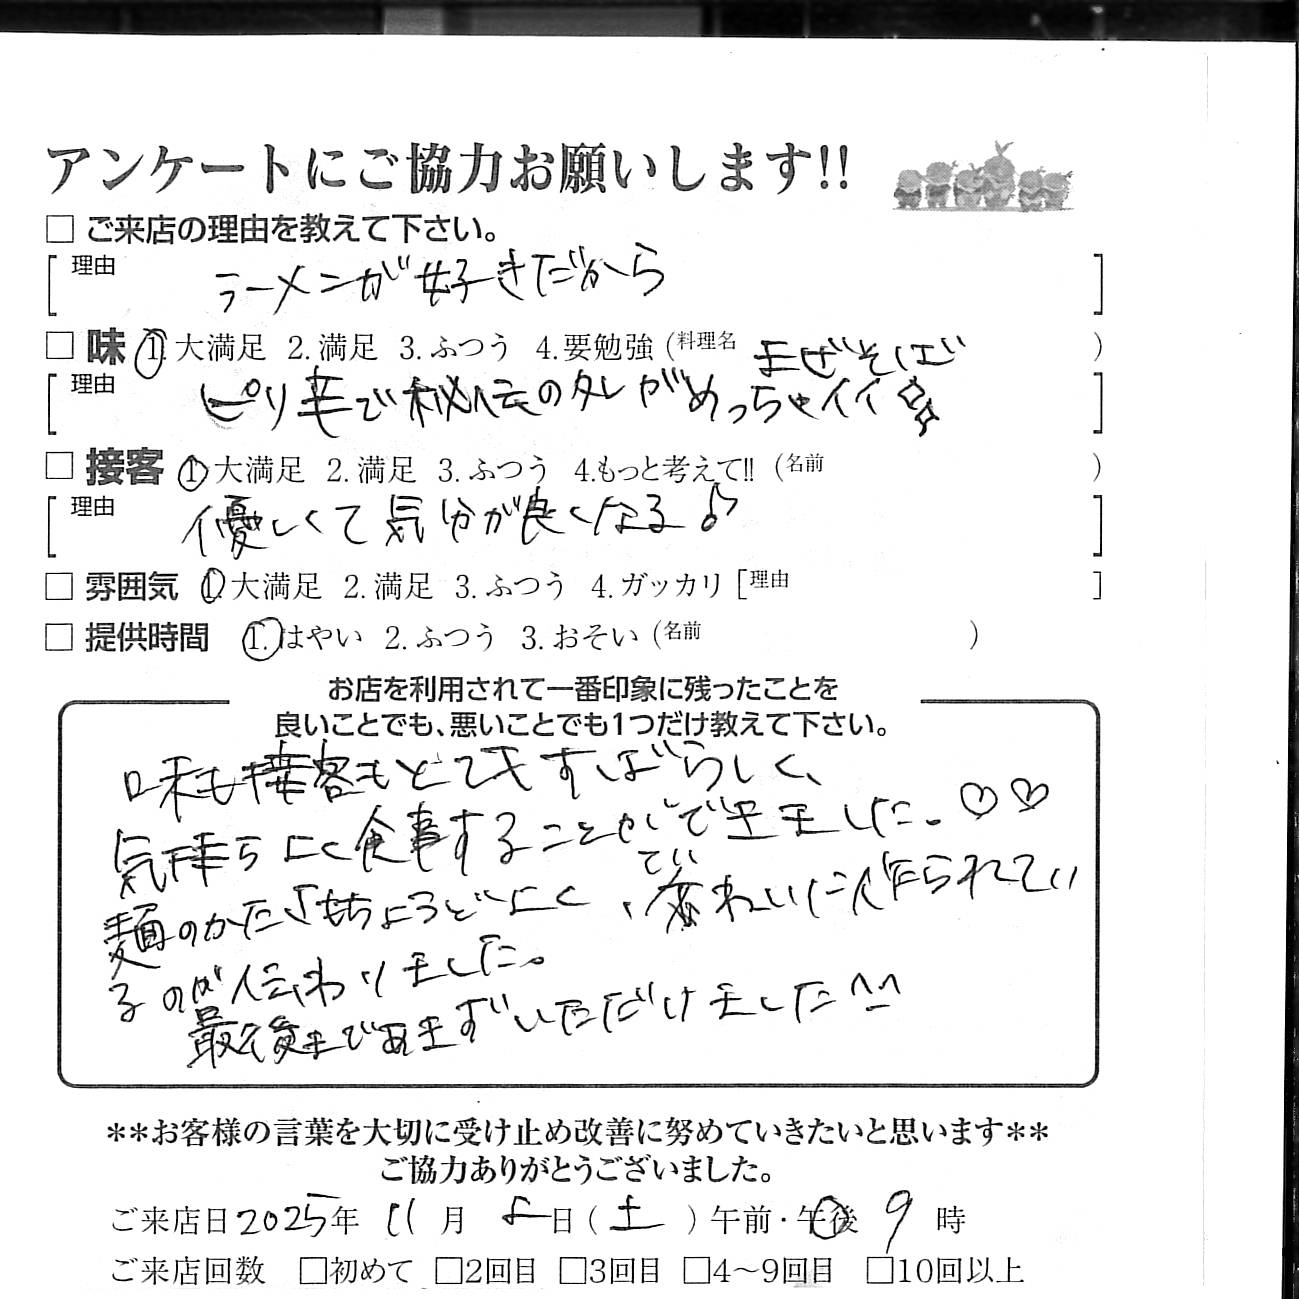 アンケートにご協力お願いします!!
□ ご来店の理由を教えて下さい。
理由 ラーメンが好きだから
□ 味 1. 大満足 2. 満足 3. ふつう 4. 要勉強 (料理名 まぜそば )
理由 ピリ辛で秘伝のタレがめっちゃイイ
□ 接客 1. 大満足 2. 満足 3. ふつう 4.もっと考えて!! (名前 )
理由 優しくて気分が良くなる♪
□ 雰囲気 1. 大満足 2. 満足 3. ふつう 4. ガッカリ [理由 ]
□ 提供時間 1. はやい 2. ふつう 3. おそい (名前 )
お店を利用されて一番印象に残ったことを
良いことでも、悪いことでも1つだけ教えて下さい。
味も接客もとてもすばらしく、
気持ちよく食事することができました。♡♡
麺のかたさもちょうどよく、ていねいに作られてい
るのが伝わりました。
最後まであまずいただけました^^
**お客様の言葉を大切に受け止め改善に努めていきたいと思います**
ご協力ありがとうございました。
ご来店日 2025年 11月 日 (土) 午前・午後 9時
ご来店回数 □初めて □2回目 □3回目 □4〜9回目 □10回以上